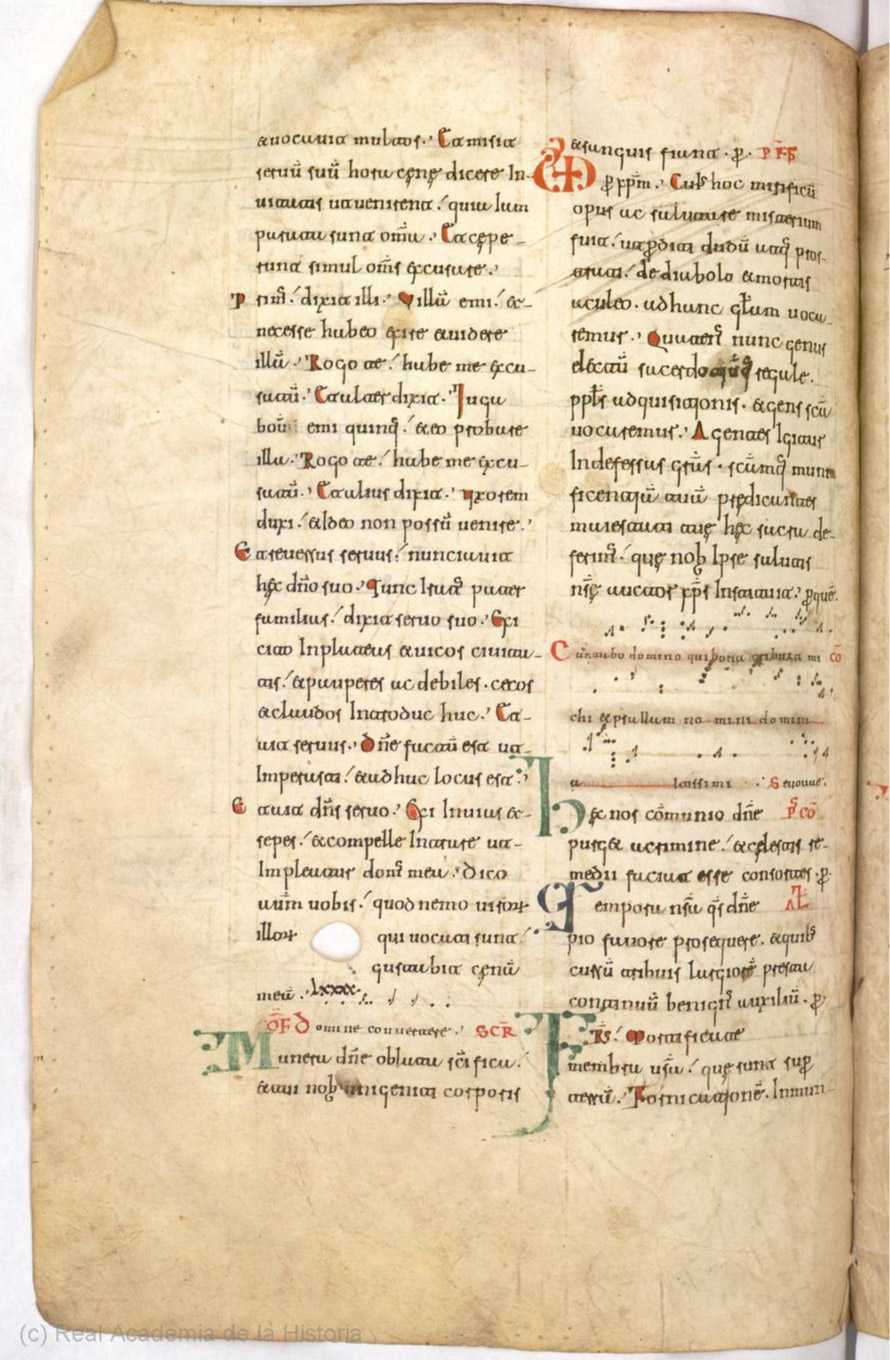 & uocauit multos. Et misit
seruū suū hora cęnę dicere In-
uitatis ut uenirent. quia Iam
parata sunt om̄a. Et cępe-
runt simul om̄s excusare.
Prim̄. dixit illi. Villā emi. &
necesse habeo exire et uidere
illā. Rogo te. habe me excu-
satū. Et alter dixit. Iuga
boū emi quinq̄. & eo probare
illa. Rogo te. habe me excu-
satū. Et alius dixit. uxorem
duxi. & Ideo non possū uenire.
Et reuersus seruus. nunciauit
hęc dn̄o suo. Tunc Irat̄ pater
familias. dixit seruo suo. Exi
cito In plateas & uicos ciuita-
tis. & pauperes ac debiles. cecos
& claudos Introduc huc. Et a-
it seruus. Dn̄e factū est ut
Imperasti. & adhuc locus est.
Et ait dn̄s seruo. Exi In uias &
sepes. & compelle Intrare ut
Impleatur dom̄ mea. dico
autm̄ uobis. quod nemo uiroꝝ
illoꝝ qui uocati sunt
gustabit cęnā
meā. lxxx
OF Domine conuertere. SCR̄
Munera dn̄e oblata sc̄ifica.
& tui nob unigeniti corporis
& sanguis fiant. ꝑ. PRF
ꝑ xp̄m. Cui hoc mirificū
opus ac saluatare misterium
fuit. ut ꝑditi dudū atq̄ pros-
trati. de diabolo & mortis
aculeo. ad hanc gl̄am uoca-
remur. Quater̄ nunc genus
electū sacerdo regale.
pp̄ls adquisitionis. & gens sc̄a
uocaremur. Agentes Igitur
Indefessas gr̄as. sc̄amq̄ muni
ficentiā tuā predicantes
maiestati tue hęc sacra de-
ferim̄. quę nob Ipse salutis
nr̄ę auctor xp̄s Instituit. ꝑquē.
Cantabo domino qui bona tribuit mi CO
chi & psallam nomini domini
altissimi. Seuouae.
Hęc nos cōmunio dn̄e Pᵗ CO
purget a crimine. & cęlestis re-
medii faciat esse consortes. ꝑ
Tempora nr̄a q̄s dn̄e AL
pio fauore prosequere. & quib
cursū tribuis largiore presta
continuū benign̄ auxiliū. ꝑ
FR̄S. Mortificate
membra ura. quę sunt supꝑ
terrā. Fornicationē. Inmun-